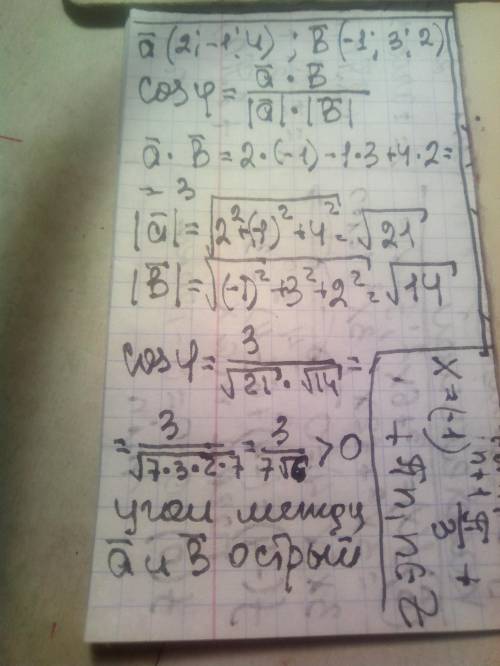 ā (2; -1; 4) ; b̄ (-1; 3; 2)
cos φ = ā · b̄ / |ā| · |b̄|
ā · b̄ = 2 · (-1) - 1 · 3 + 4 · 2 =
= 3
|ā| = √(2² + (-1)² + 4²) = √21
|b̄| = √((-1)² + 3² + 2²) = √14
cos φ = 3 / √21 · √14 =
= 3 / √(7 · 3 · 2 · 7) = 3 / 7√6 > 0
угол между
ā и b̄ острый
x = (-1)ⁿ⁺¹ π/3 +
+ πn, n∈Z